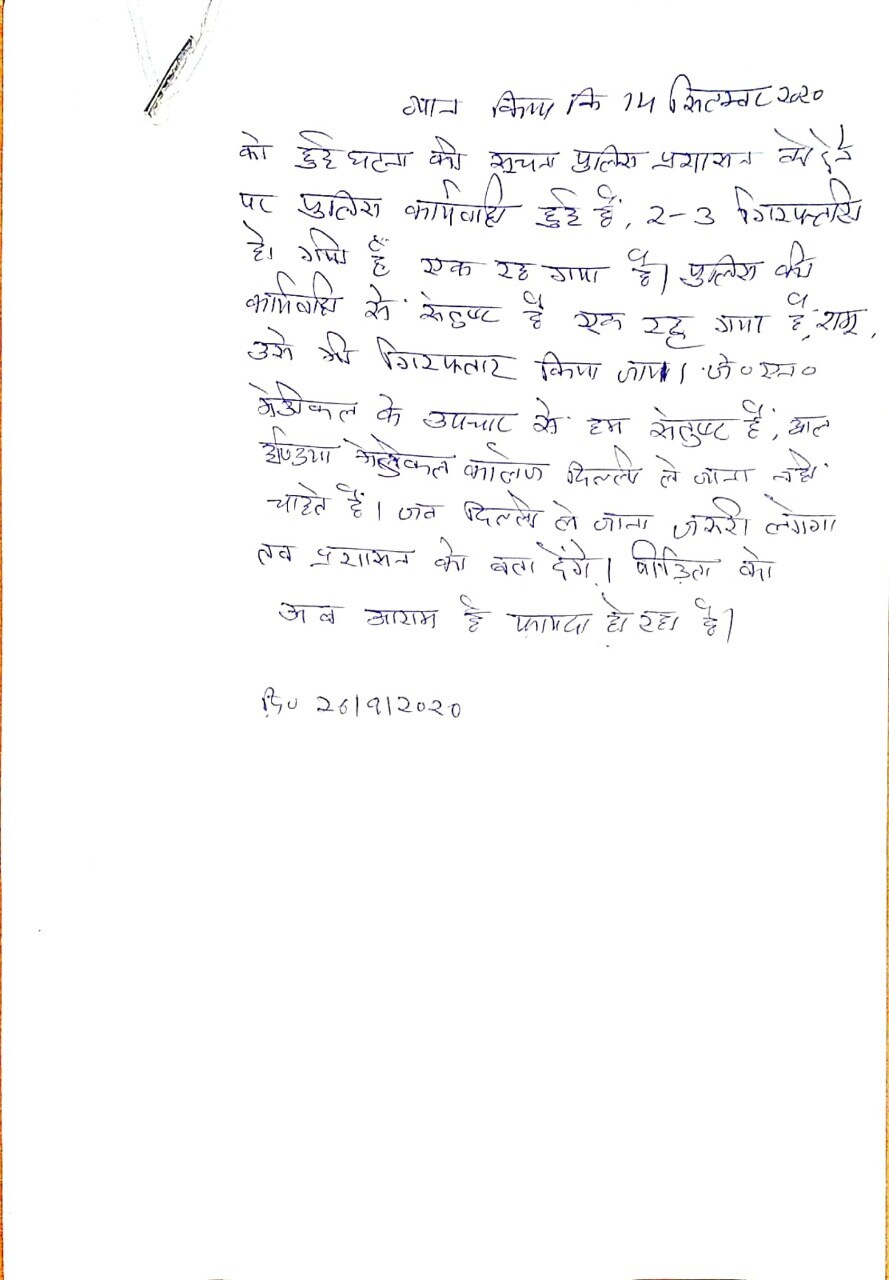 व्यान किया कि 14 सितम्बर 2020
को हुई घटना की सूचना पुलिस प्रशासन को देने
पर पुलिस कार्यवाही हुई हैं, 2-3 गिरफ्तारी
हो गयी हैं एक रह गया है। पुलिस की
कार्यवाही से संतुष्ट है एक रह गया है, रामू,
उसे भी गिरफ्तार किया जाय। जे० एन०
मेडीकल के उपचार से हम संतुष्ट हैं, आल
इण्डिया मेडीकल कालेज दिल्ली ले जाना नही
चाहते हैं। जब दिल्ली ले जाना जरुरी लगेगा
तब प्रशासन को बता देंगे। पीड़िता को
अब आराम है फायदा हो रहा है।
दि० 26/9/2020